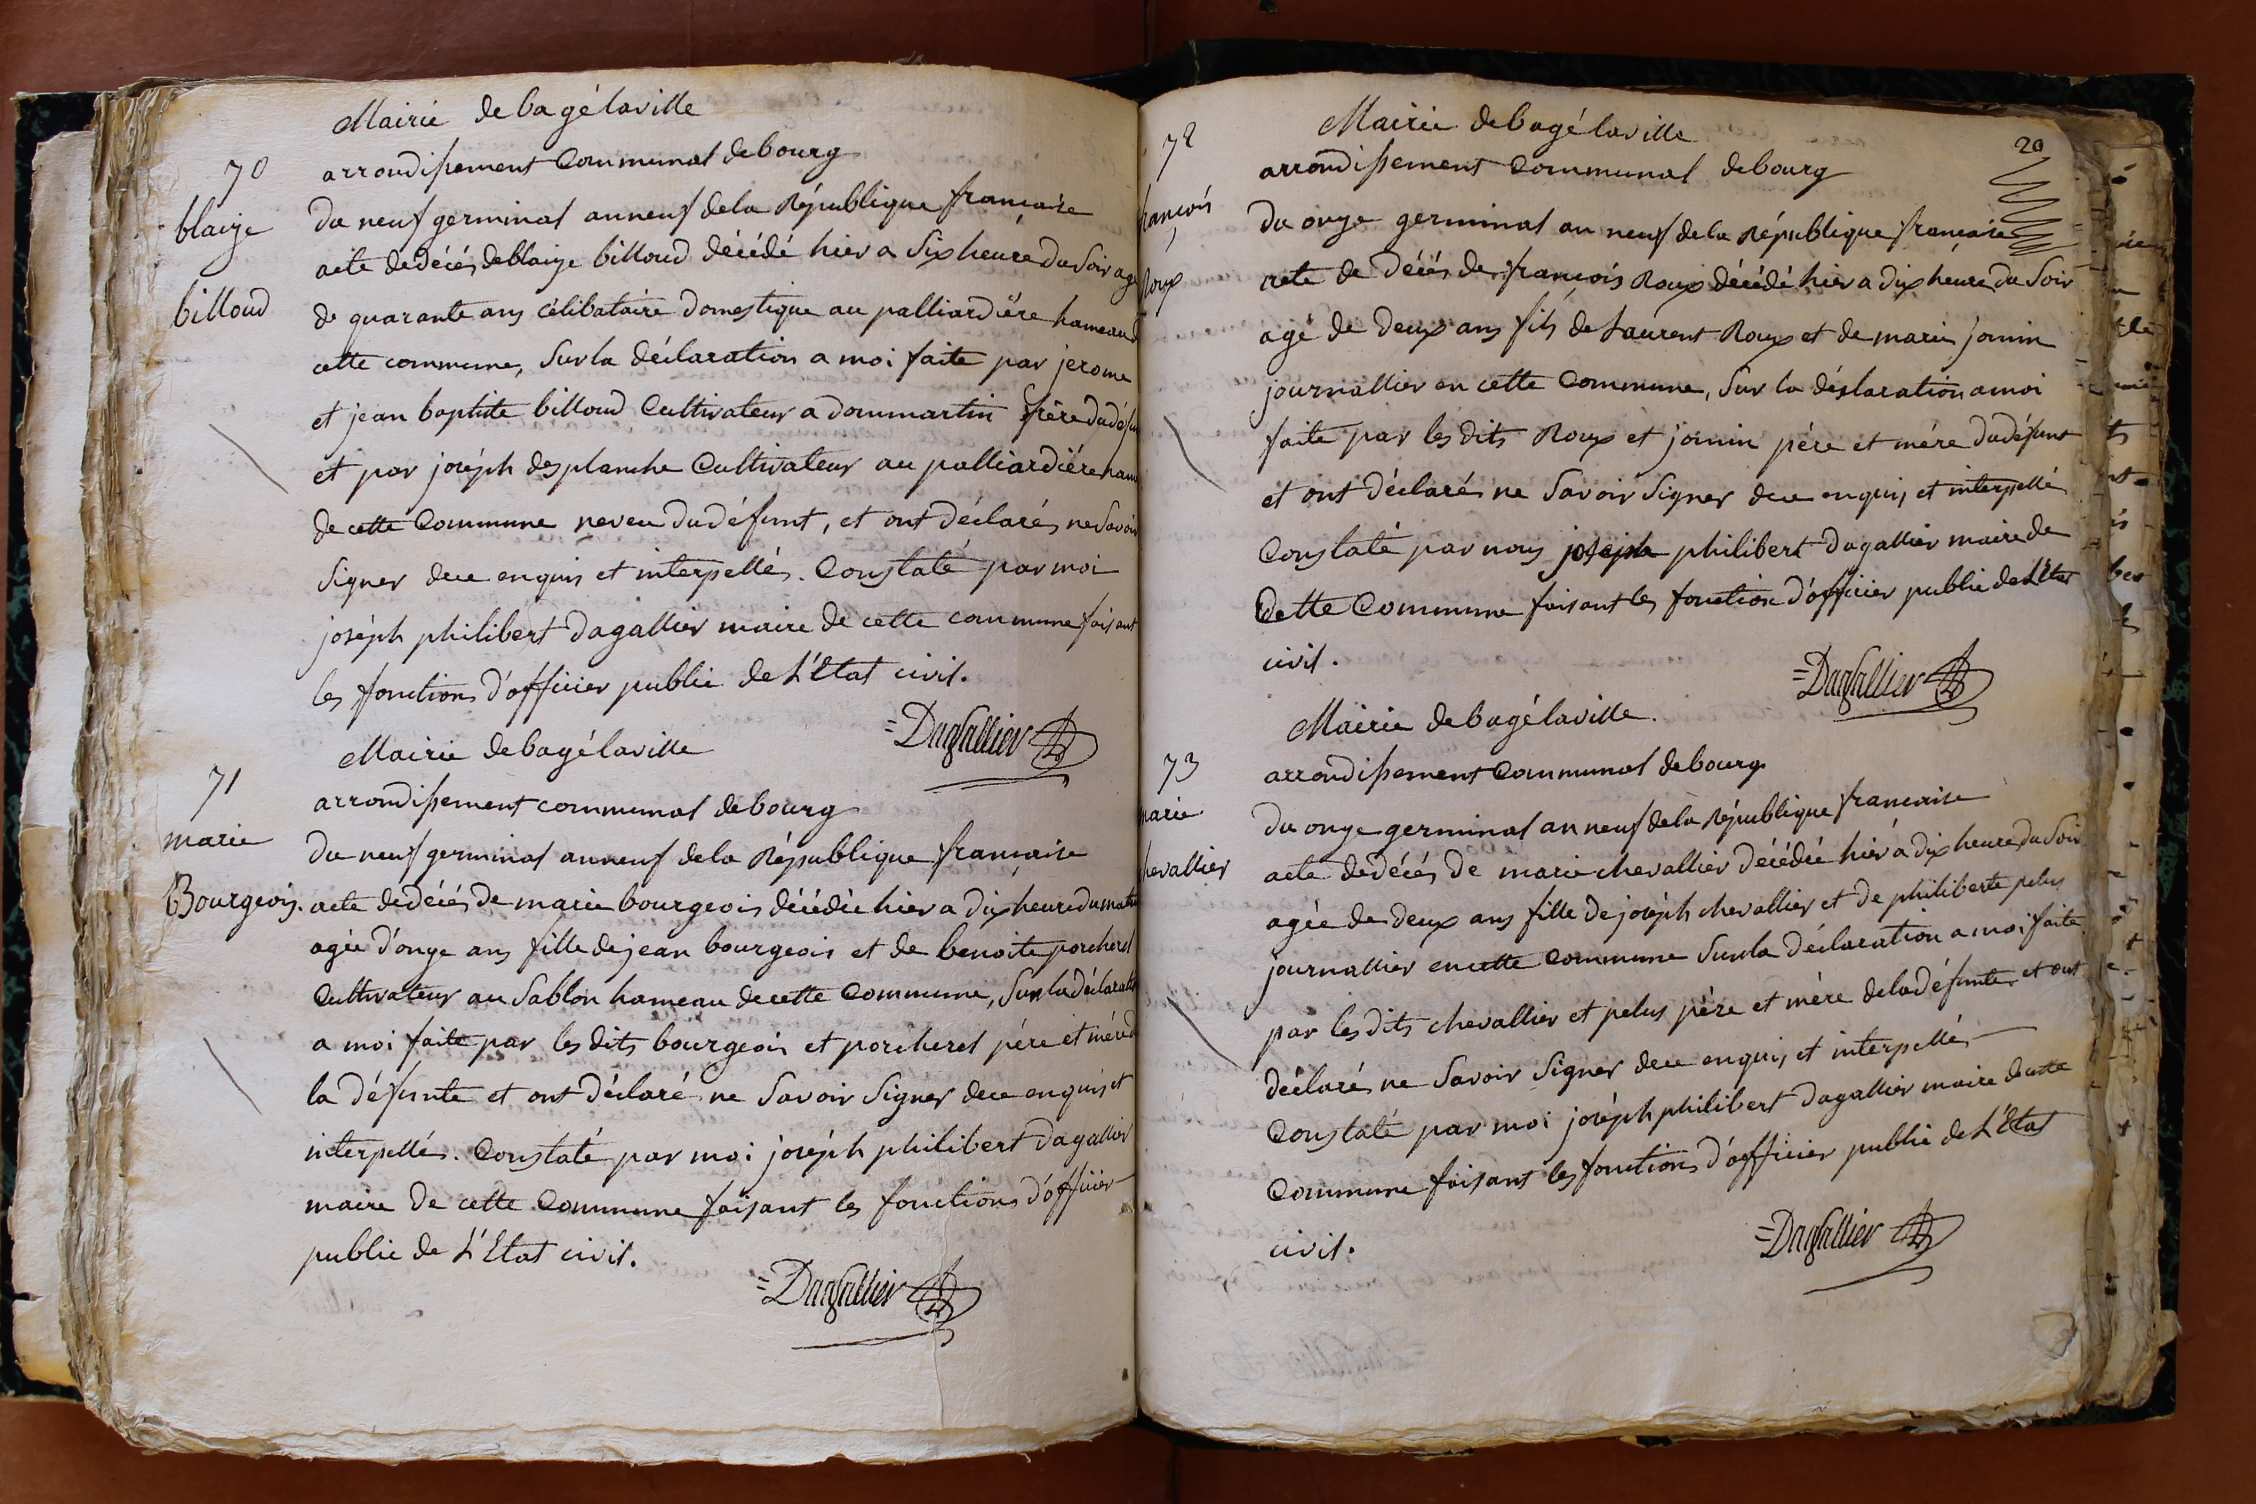 Mairie de bagélaville
70
arrondissement Communal de bourg
blaize
billoud
du neuf germinal an neuf de la République francaise
acte de décés de blaize billoud décédé hier a Six heure du Soir agé
de quarante ans célibataire domestique au palliardière hameau d
cette commune, Sur la déclaration a moi faite par jerome
et jean baptiste billoud Cultivateur a dommartin frère du défun
et par joséph desplanche Cultivateur au palliardiére ham
de cette Commune neveu du défunt, et ont déclarés ne Savoir
Signer de ce enquis et interpellés. Constaté par moi
joséph philibert dagallier maire de cette commune faisant
les fonctions d'officier public de L'Etat civil.
=Dagallier
Mairie de bagélaville
71
arrondissement communal de bourg
marie
Bourgeois.
du neuf germinal an neuf de la République francaise
acte de décés de marie bourgeois décédée hier a dix heure du matin
agée d'onze ans fille de jean bourgeois et de benoite porcherel
Cultivateur au Sablon hameau de cette Commune, Sur la déclarati
a moi faite par les dits bourgeois et porcherel pére et mére d
la défunte et ont déclaré ne Savoir Signer de ce enquis et
interpellés. Constaté par moi joséph philibert dagallier
maire de cette Commune faisant les fonctions d'officier
public de L'Etat civil.
=Dagallier
20
Mairie de bagé laville
72
arrondissement Communal de bourg
francois
Roux
du onze germinal an neuf de la République francaise
acte de décés de francois Roux décédé hier a dix heure du Soir
agé de deux ans fils de Laurent Roux et de marie jomin
journallier en cette Commune, Sur la déclaration a moi
faite par les dits Roux et jomin pére et mére du défunt
et ont déclarés ne Savoir Signer de ce enquis et interpellé
Constaté par nous joseph philibert dagallier maire de
Cette Commune faisant les fonction d'officier public de L'Etat
civil.
=Dagallier
Mairie de bagélaville.
73
arrondissement Communal de bourg
marie
chevallier
du onze germinal an neuf de la République francaise
acte de décés de marie chevallier décédée hier a dix heure du Soir
agée de deux ans fille de joséph chevallier et de philiberte pelus
journallier en cette Commune Sur la déclaration a moi faite
par les dits chevallier et pelus père et mère de la défunte et ont
déclarés ne Savoir Signer de ce enquis et interpellés
Constaté par moi joséph philibert dagallier maire de cette
Commune faisant les fonctions d'officier public de L'Etat
civil.
=Dagallier